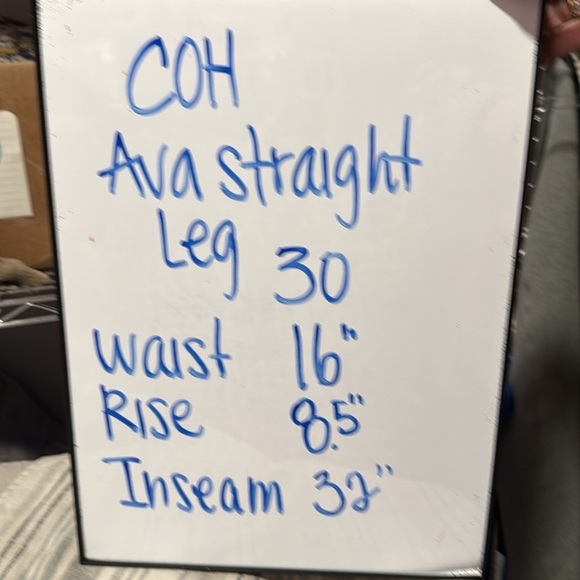 COH
Ava straight
Leg 30
Waist 16"
Rise 8.5"
Inseam 32"